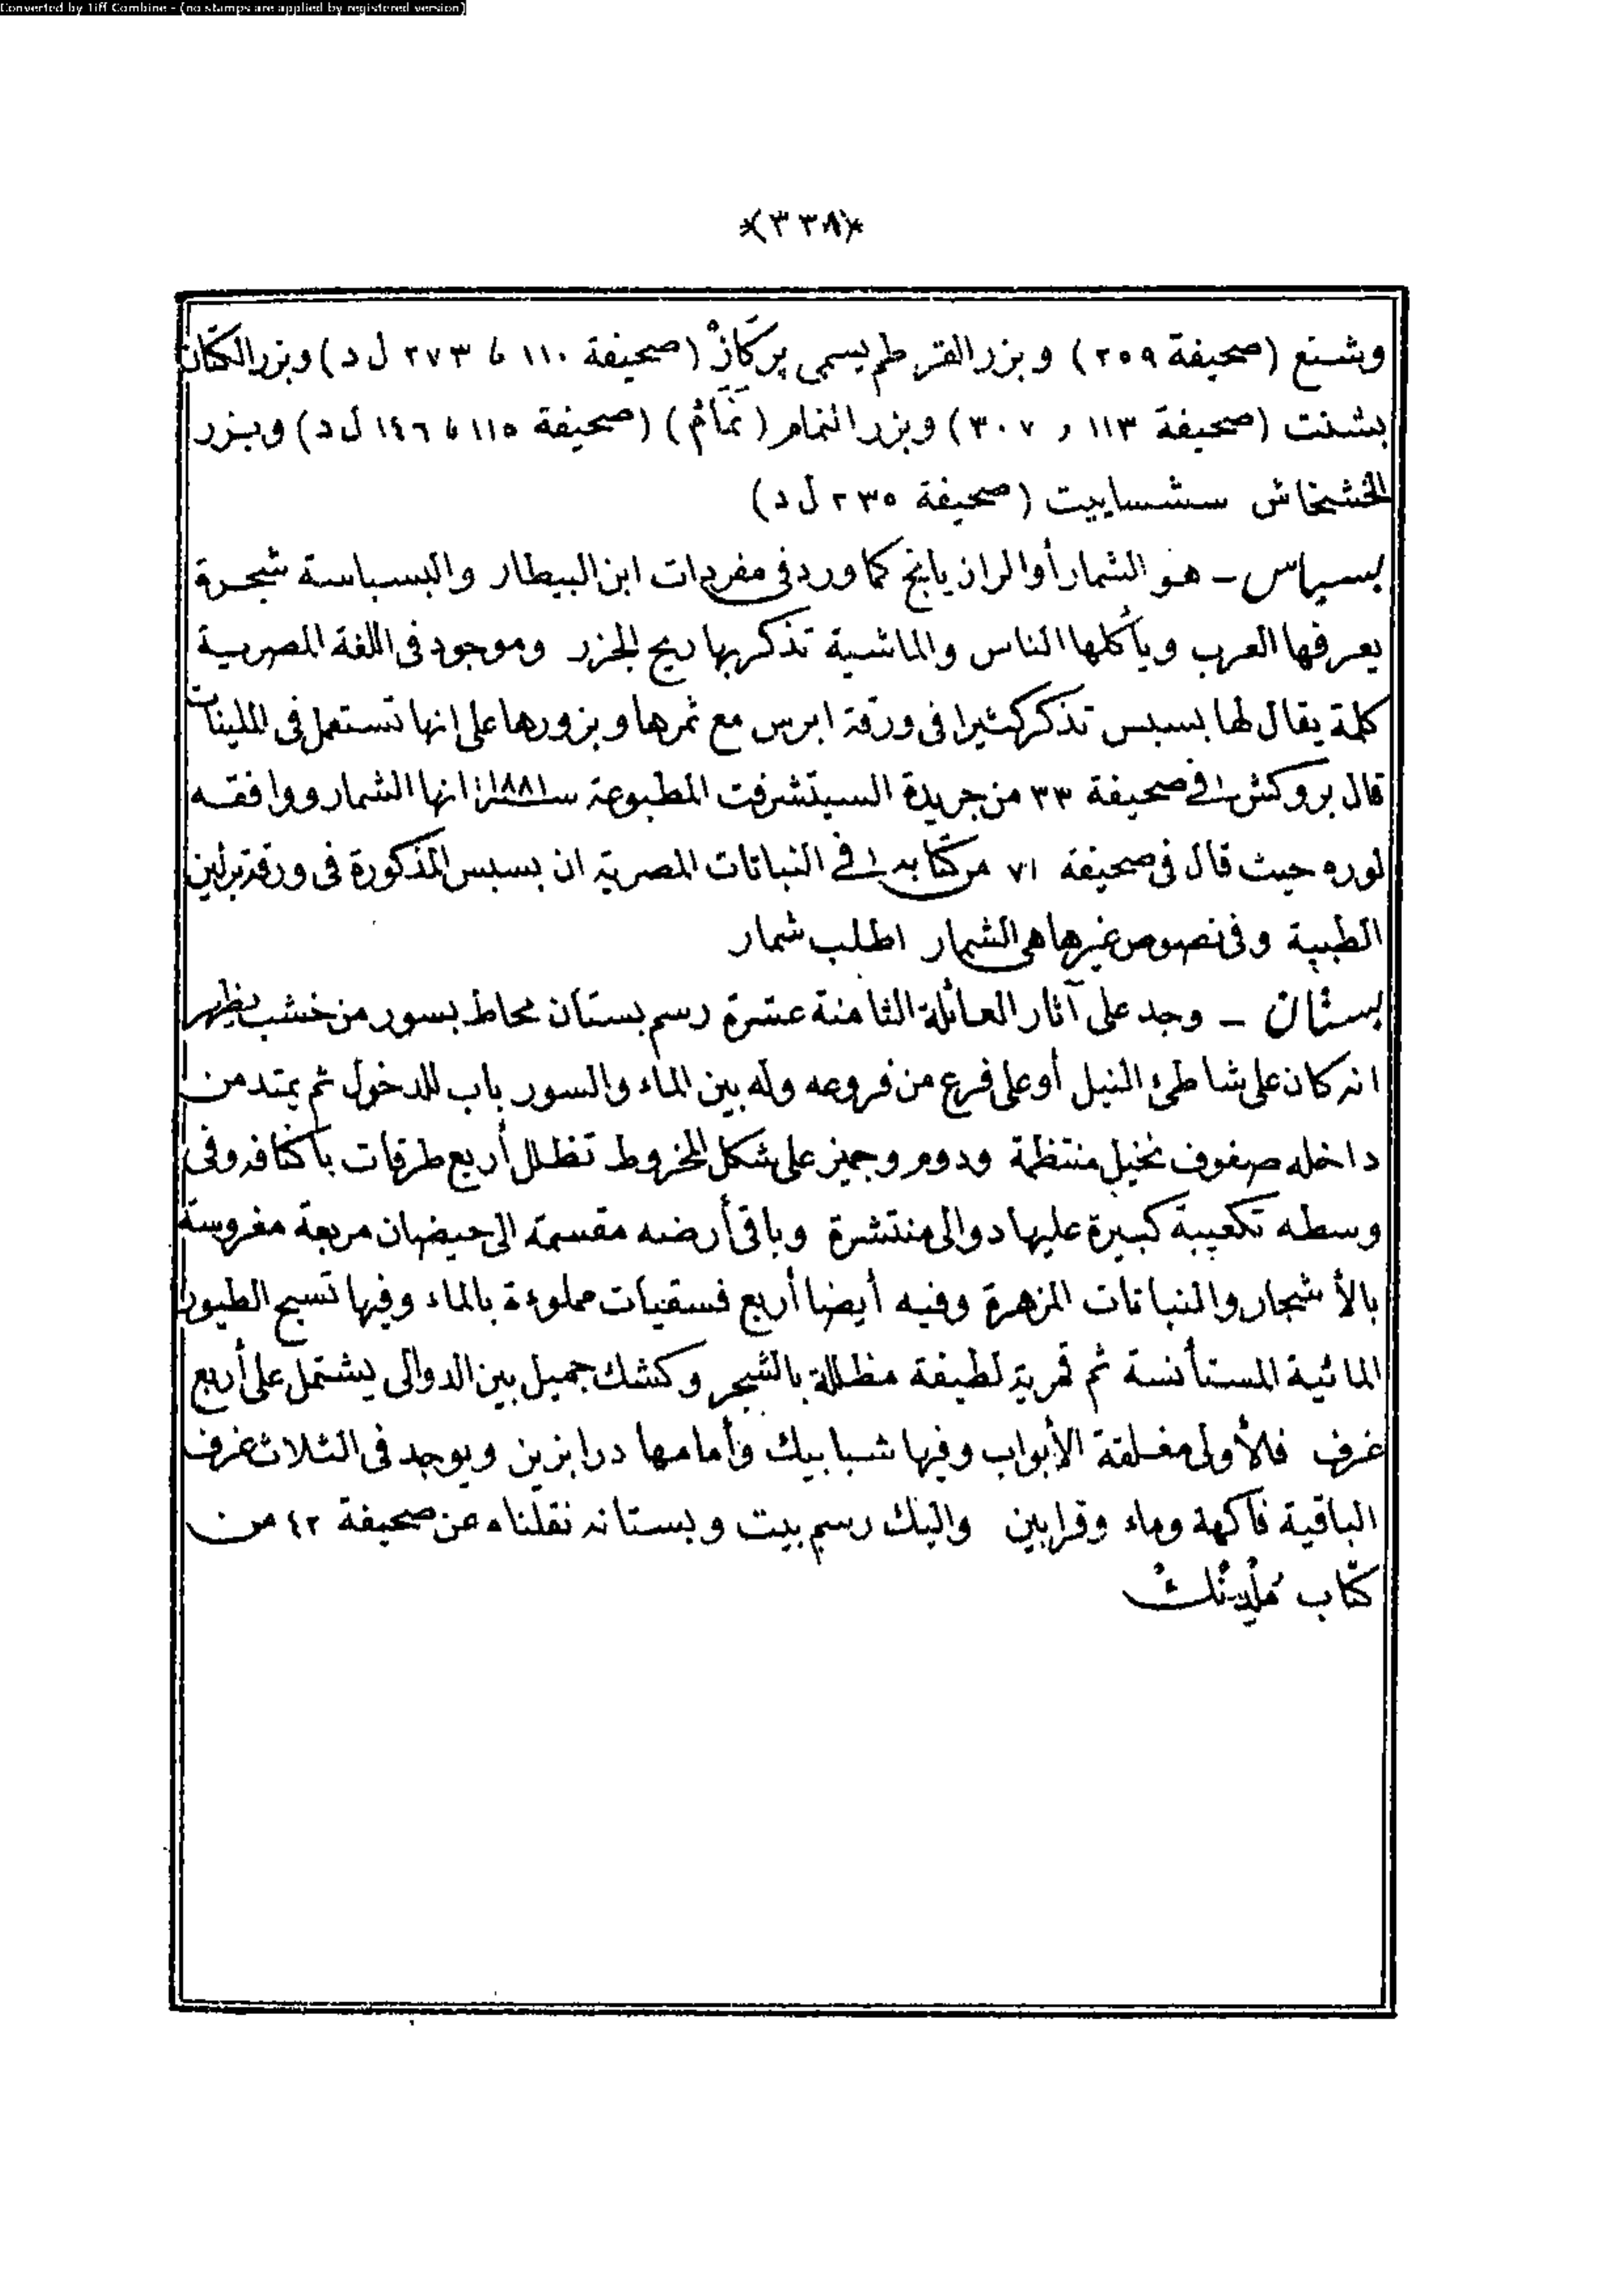 Converted by Tiff Combine - (no stamps are applied by registered version)
*(٣٣٨)*
وشنع (صحيفة ٢٥٩) وبزر القرطم يسمى پرکَازْ (صحيفة ١١٠ ة ٢٧٣ ل د) وبزر الكتان
بشنت (صحيفة ١١٣ و ٣٠٧) وبزر النمام (نَمَّامْ) (صحيفة ١١٥ ة ١٤٦ ل د) وبزر
الخشخاش سشسابيت (صحيفة ٢٣٥ ل د)
بسباس – هو الشمار أو الرازيانج كما ورد فى مفردات ابن البيطار والبسباسة شجرة
يعرفها العرب ويأكلها الناس والماشية تذكر بها ريح الجزر وموجود فى اللغة المصرية
كلمة يقال لها بسبس تذكر كثيرا فى ورقة ابرس مع ثمرها وبزورها على انها تستعمل فى الملينات
قال بروكش فى صحيفة ٣٣ من جريدة السيتشرفت المطبوعة سنة ١٨٨١ انها الشمار ووافقه
لوره حيث قال فى صحيفة ٧١ من كتابه فى النباتات المصرية ان بسبس المذكورة فى ورقة برلين
الطبية وفى نصوص غيرها هى الشمار اطلب شمار
بستان – وجد على آثار العائلة الثامنة عشرة رسم بستان محاط بسور من خشب يظهر
انه كان على شاطئ النيل أو على فرع من فروعه وله بين الماء والسور باب للدخول ثم يمتد من
داخله صفوف نخيل منتظمة ودوم وجميز على شكل المخروط تظلل أربع طرقات بأكنافه وفى
وسطه تكعيبة كبيرة عليها دوالى منتشرة وباقى أرضه مقسمة الى حيضان مربعة مغروسة
بالأشجار والنباتات المزهرة وفيه أيضا أربع فسقيات مملوءة بالماء وفيها تسبح الطيور
المائية المستأنسة ثم قمرية لطيفة مظللة بالشجر وكشك جميل بين الدوالى يشتمل على أربع
غرف فالأولى مغلقة الأبواب وفيها شبابيك وأمامها درابزين ويوجد فى الثلاث غرف
الباقية فاكهة وماء وقرابين واليك رسم بيت وبستانه نقلناه عن صحيفة ٤٢ من
كتاب